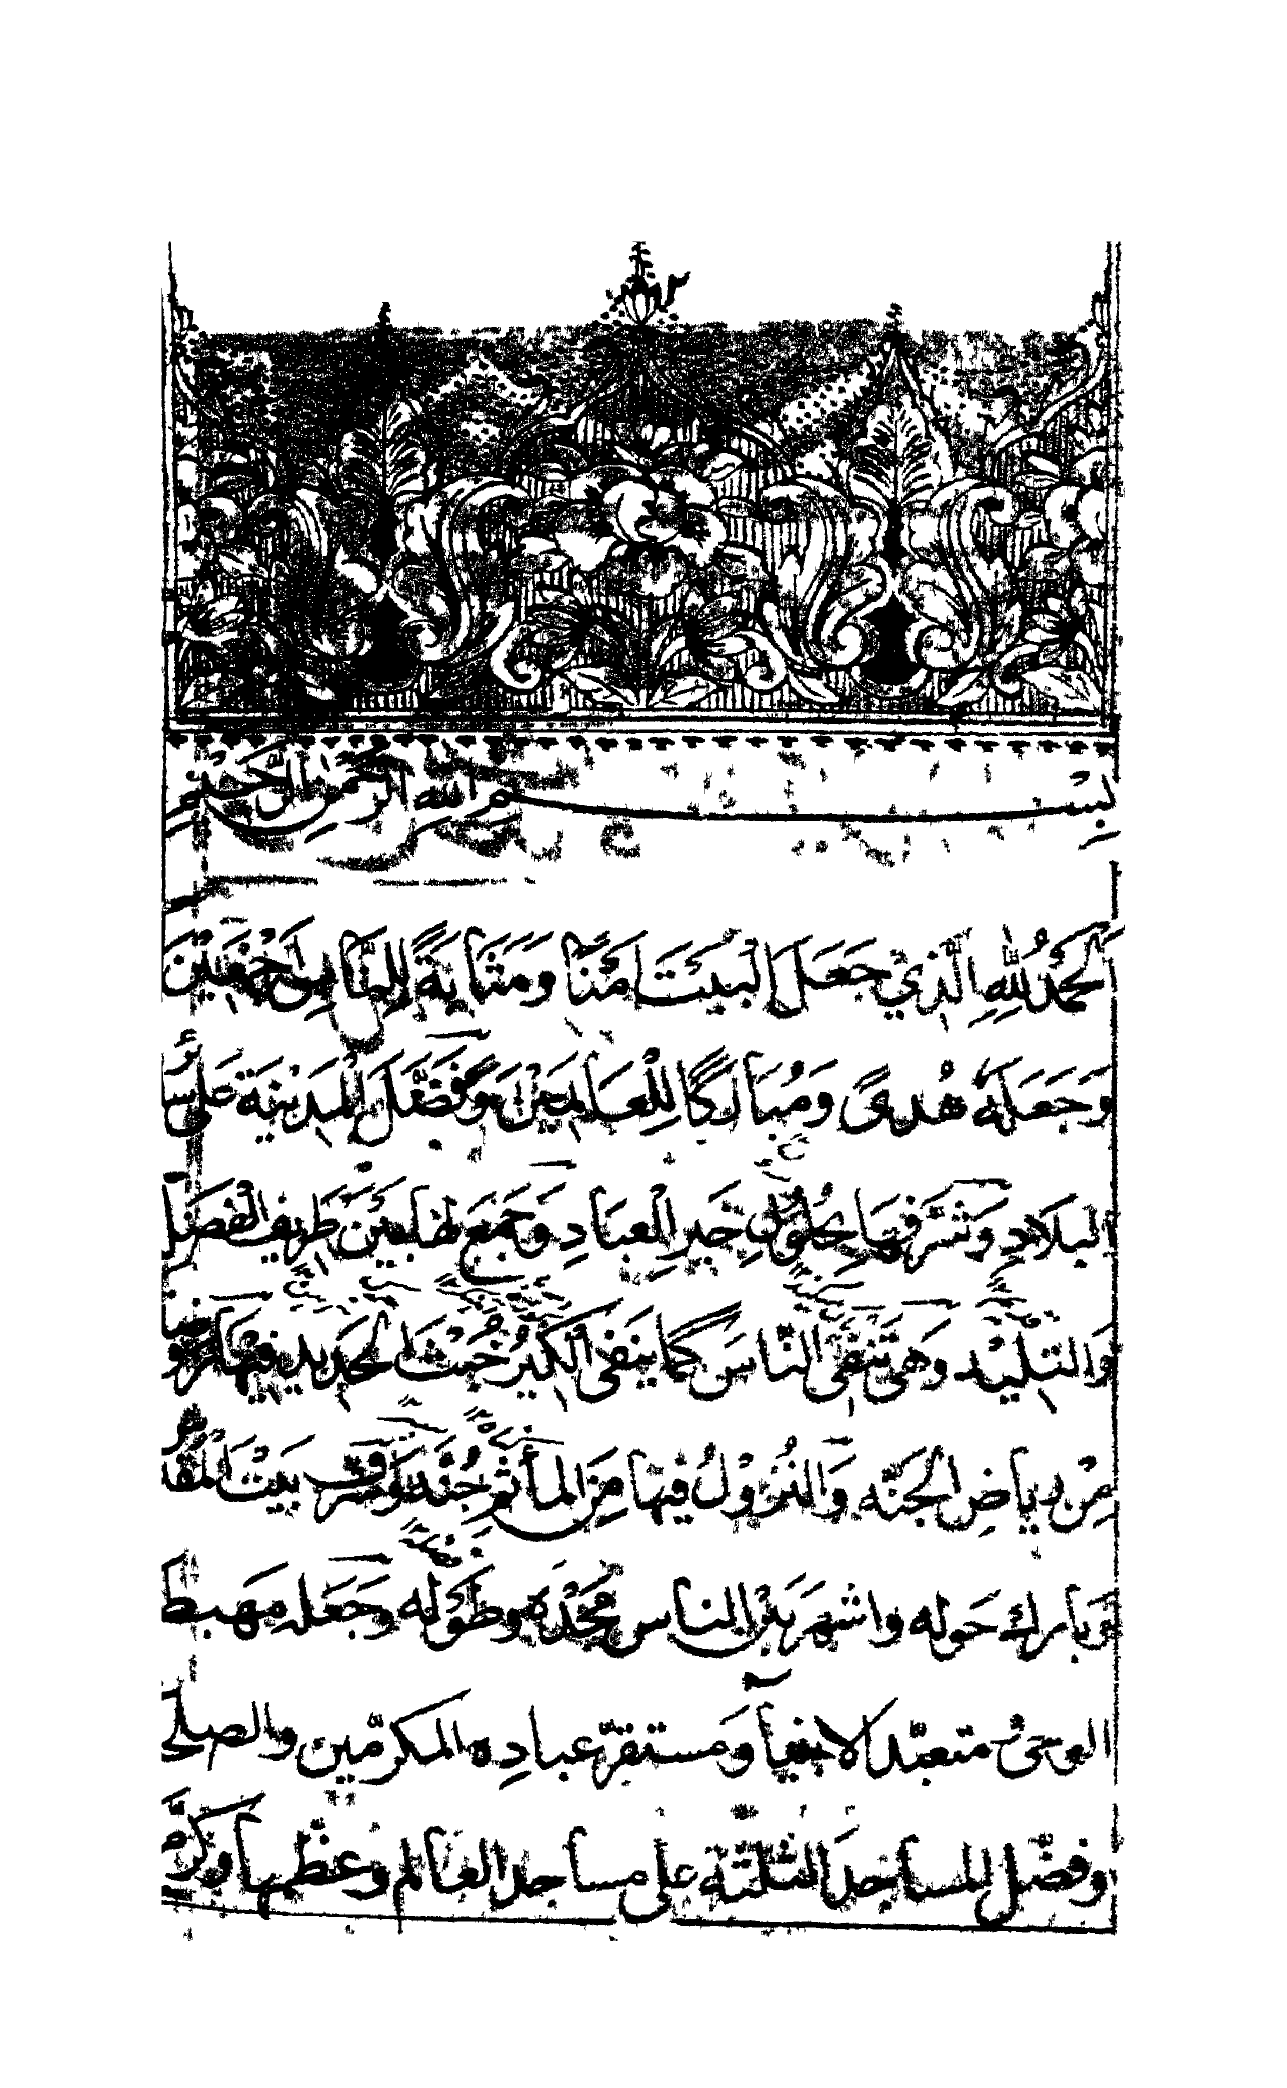 ٢
بسم الله الرحمن الرحيم
الحَمْدُ لِلّهِ الَّذِيْ جَعَلَ البَيْتَ امْنًا وَمَثَابَةً لِلنَّاسِ اَجْمَعِيْنَ
وَجَعَلَهُ هُدىً وَمُبَارَكًا لِلْعَالَمِيْنَ وَفَضَّلَ الْمَدِيْنَةَ عَلى سائر
البلادِ وَشَرَّفَهَا بِحُلُوْلِ خَيرِ الْعِبَادِ وَجَمَعَ طابعين طريف الفَضَل
وَالتليْد وَهى تَنْفِى النَّاسَ كَمَا ينفى الْكِيْرُ خُبْثَ الْحَدِيدِ فيها
مِنْ رياض الجنّه وَالنُزُوْلُ فيها مِنَ المأثر جُنَّه وشرف بَيْتَ الْمُقَد
وَبارك حَوله واشهر بَيْنَ الناس مَجْدَه وطَوْلَه وَجَعَلَه مهبط
الوحىْ متعبّدالانبيآ وَمستقرّ عبادِه المكرّمين والصلحـ
وفضّل المساجدَ الثلثة على مساجد العالم وعظّمها وكرّم